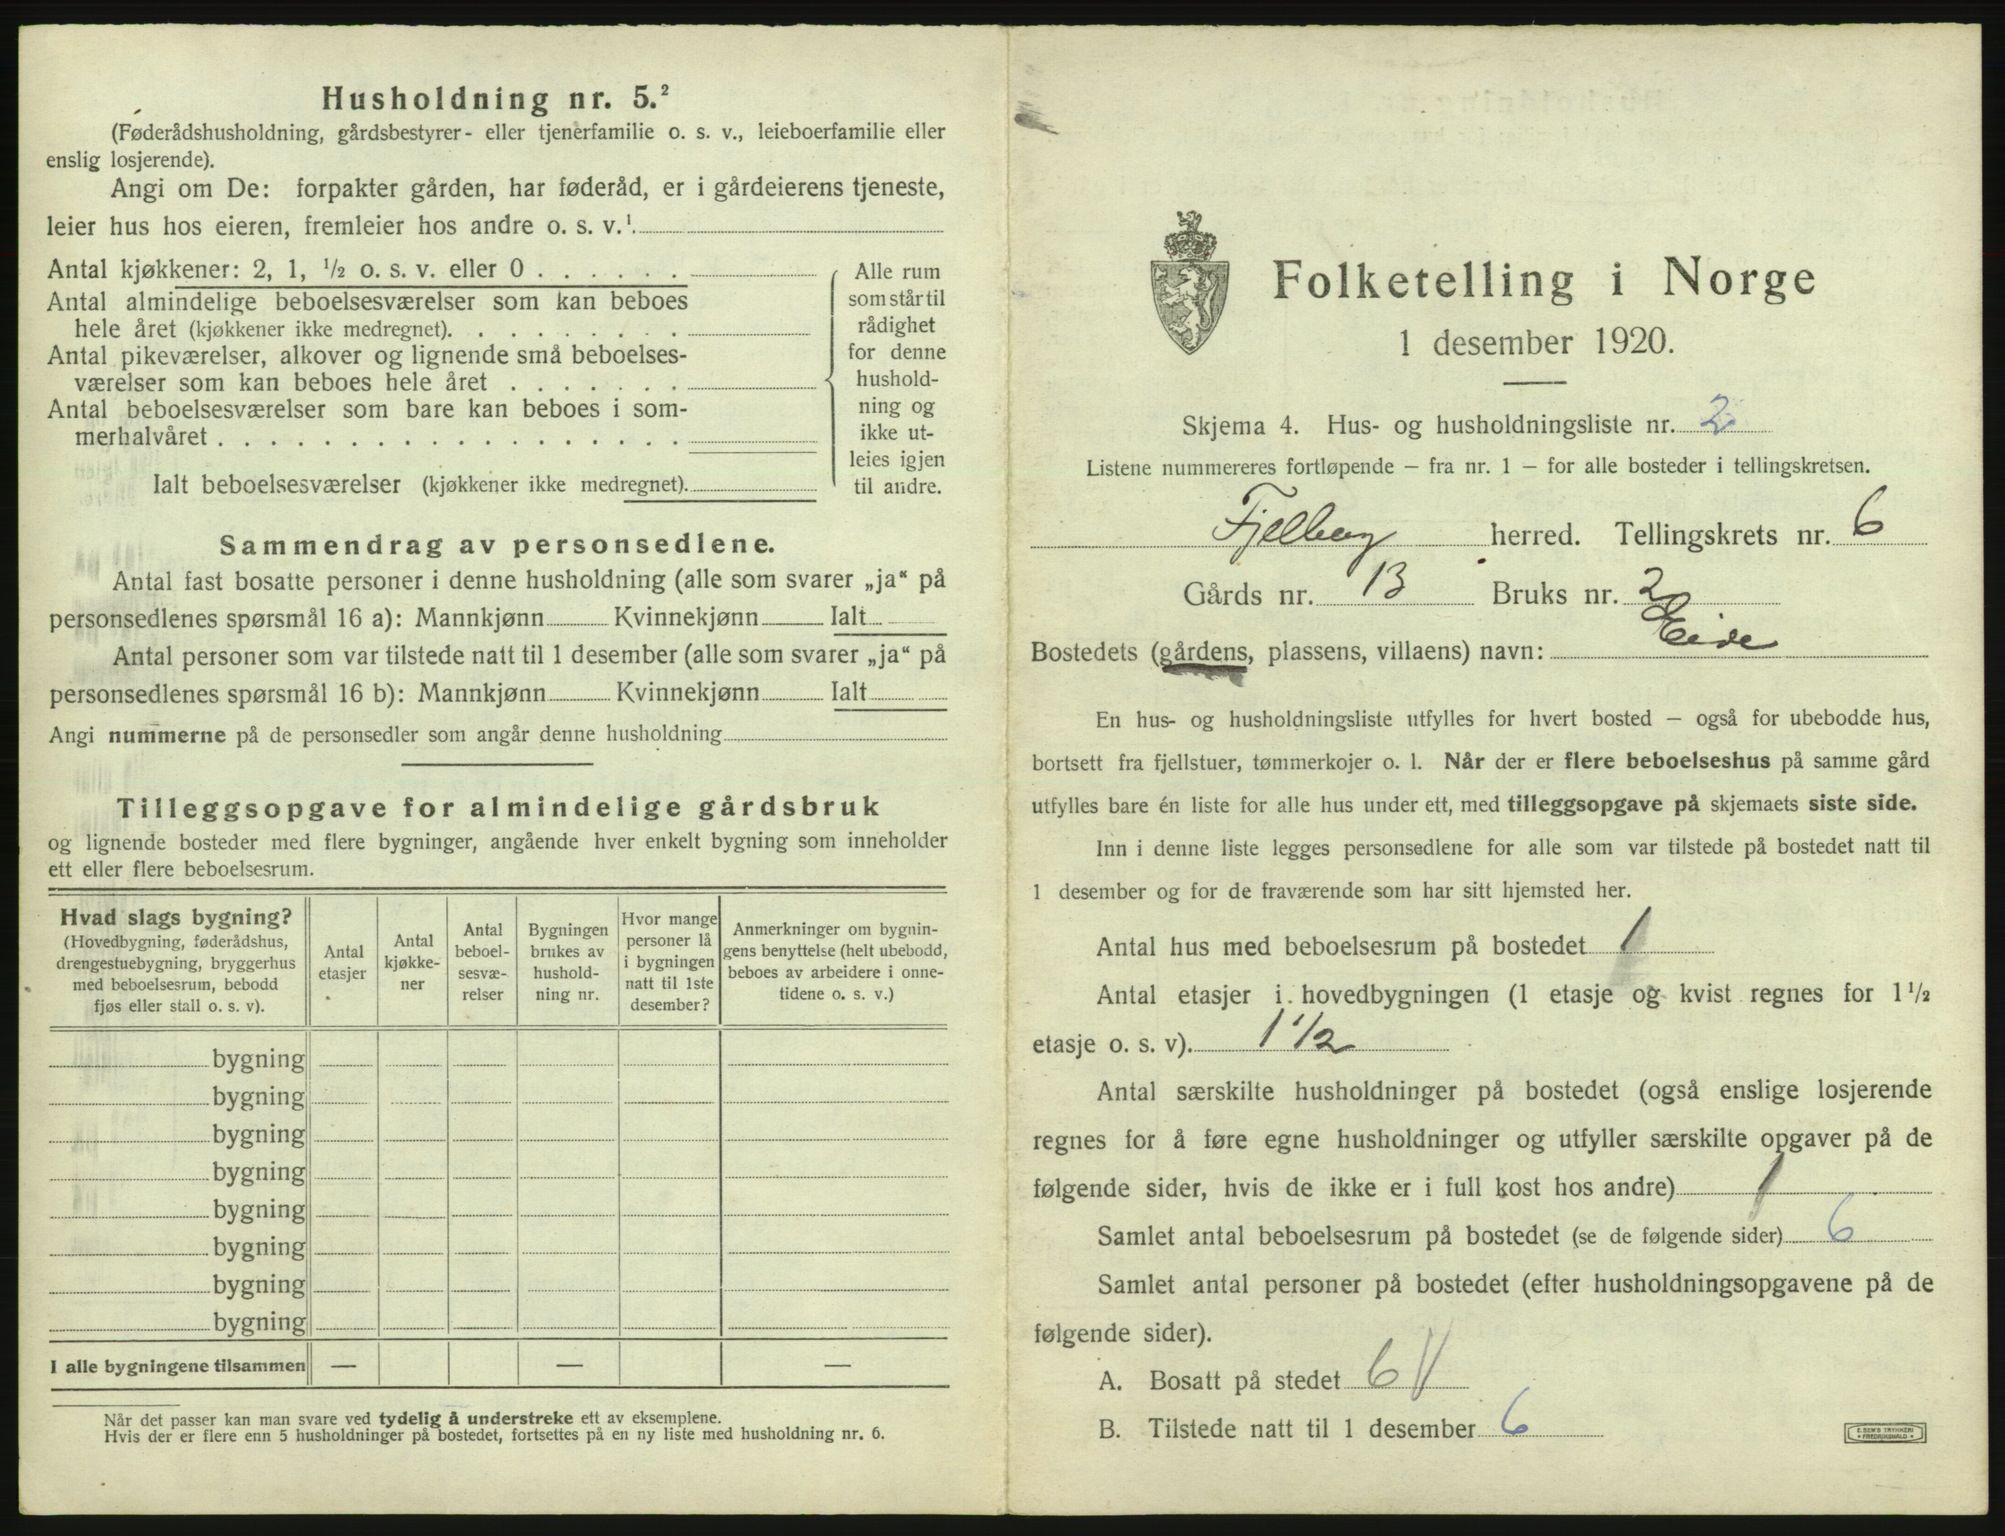 Husholdning nr. 5.²
(Føderådshusholdning, gårdsbestyrer- eller tjenerfamilie o. s. v., leieboerfamilie eller
enslig losjerende).
Angi om De: forpakter gården, har føderåd, er i gårdeierens tjeneste,
leier hus hos eieren, fremleier hos andre o. s. v.¹
Antal kjøkkener: 2, 1, ½ o. s. v. eller 0 . . . . . .
Antal almindelige beboelsesværelser som kan beboes
hele året (kjøkkener ikke medregnet). . . . . . . . .
Antal pikeværelser, alkover og lignende små beboelses-
værelser som kan beboes hele året . . . . . . .
Antal beboelsesværelser som bare kan beboes i som-
merhalvåret . . . . . . . . . . . . . . . . . .
Ialt beboelsesværelser (kjøkkener ikke medregnet).
Alle rum
som står til
rådighet
for denne
hushold-
ning og
ikke ut-
leies igjen
til andre.
Sammendrag av personsedlene.
Antal fast bosatte personer i denne husholdning (alle som svarer „ja“ på
personsedlenes spørsmål 16 a): Mannkjønn Kvinnekjønn Ialt
Antal personer som var tilstede natt til 1 desember (alle som svarer „ja“ på
personsedlenes spørsmål 16 b): Mannkjønn Kvinnekjønn Ialt
Angi nummerne på de personsedler som angår denne husholdning
Tilleggsopgave for almindelige gårdsbruk
og lignende bosteder med flere bygninger, angående hver enkelt bygning som inneholder
ett eller flere beboelsesrum.
Hvad slags bygning?
(Hovedbygning, føderådshus,
drengestuebygning, bryggerhus
med beboelsesrum, bebodd
fjøs eller stall o. s. v).
Antal
etasjer
Antal
kjøkke-
ner
Antal
beboel-
sesvæ-
relser
Bygningen
brukes av
hushold-
ning nr.
Hvor mange
personer lå
i bygningen
natt til 1ste
desember?
Anmerkninger om bygnin-
gens benyttelse (helt ubebodd,
beboes av arbeidere i onne-
tidene o. s. v.)
bygning
bygning
bygning
bygning
bygning
bygning
bygning
bygning
I alle bygningene tilsammen — — —
Når det passer kan man svare ved tydelig å understreke ett av eksemplene.
Hvis der er flere enn 5 husholdninger på bostedet, fortsettes på en ny liste med husholdning nr. 6.
Folketelling i Norge
1 desember 1920.
Skjema 4. Hus- og husholdningsliste nr. 2
Listene nummereres fortløpende – fra nr. 1 – for alle bosteder i tellingskretsen.
Fjelberg herred. Tellingskrets nr. 6
Gårds nr. 13 Bruks nr. 2
Bostedets (gårdens, plassens, villaens) navn: Eide
En hus- og husholdningsliste utfylles for hvert bosted – også for ubebodde hus,
bortsett fra fjellstuer, tømmerkojer o. l. Når der er flere beboelseshus på samme gård
utfylles bare én liste for alle hus under ett, med tilleggsopgave på skjemaets siste side.
Inn i denne liste legges personsedlene for alle som var tilstede på bostedet natt til
1 desember og for de fraværende som har sitt hjemsted her.
Antal hus med beboelsesrum på bostedet 1
Antal etasjer i hovedbygningen (1 etasje og kvist regnes for 1½
etasje o. s. v). 1 ½
Antal særskilte husholdninger på bostedet (også enslige losjerende
regnes for å føre egne husholdninger og utfyller særskilte opgaver på de
følgende sider, hvis de ikke er i full kost hos andre) 1
Samlet antal beboelsesrum på bostedet (se de følgende sider) 6
Samlet antal personer på bostedet (efter husholdningsopgavene på de
følgende sider).
A. Bosatt på stedet 6
B. Tilstede natt til 1 desember 6
E. SEM'S TRYKKERI
FREDRIKSHALD